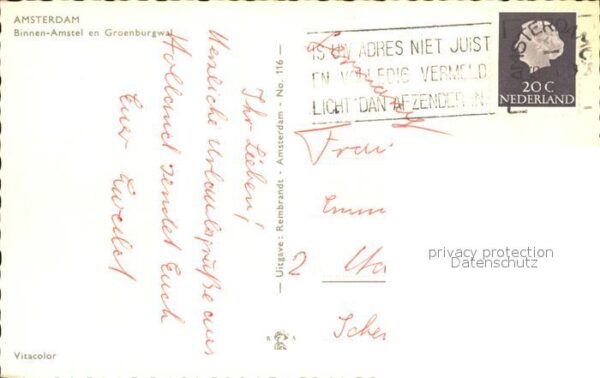 AMSTERDAM
Binnen-Amstel en Groenburgwal
Ihr Lieben!
Herzliche Urlaubsgrüße aus
Holland sendet Euch
Euer
Vitacolor
— Uitgave: Rembrandt - Amsterdam - No. 116 —
IS UW ADRES NIET JUIST
EN VOLLEDIG VERMELD
LICHT DAN AFZENDER IN
AMSTERDAM
20 C
NEDERLAND
Frau
Emm
2
Scher
privacy protection
Datenschutz
R A